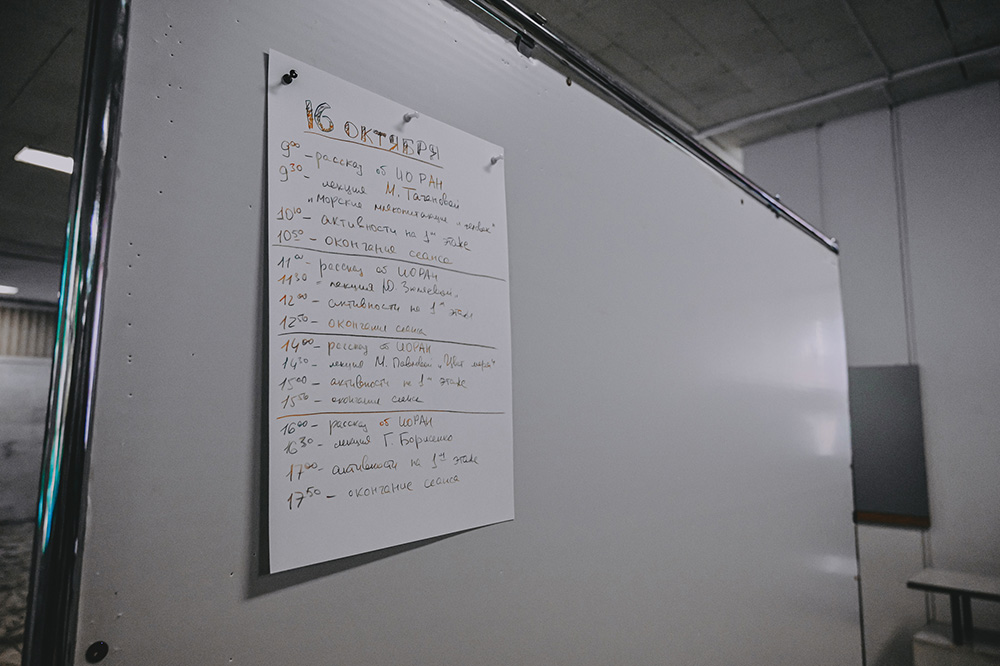 16 ОКТЯБРЯ
9⁰⁰ – рассказ об ИО РАН
9³⁰ – лекция М. Тачановой
"Морские млекопитающие и человек"
10¹⁰ – активности на 1ᵒᵐ этаже
10⁵⁰ – окончание сеанса
11⁰⁰ – рассказ об ИОРАН
11³⁰ – лекция Ю.
12⁰⁰ – активности на 1ᵒᵐ этаже
12⁵⁰ – окончание сеанса
14⁰⁰ – рассказ об ИОРАН
14³⁰ – лекция М. Павловой "Цвет моря"
15⁰⁰ – активности на 1ᵒᵐ этаже
15⁵⁰ – окончание сеанса
16⁰⁰ – рассказ об ИОРАН
16³⁰ – лекция Г. Борисенко
17⁰⁰ – активности на 1ᵒᵐ этаже
17⁵⁰ – окончание сеанса